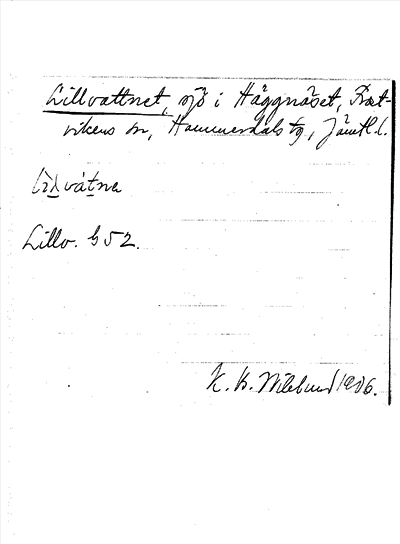 Lillvattnet, sjö i Häggnäset, Ract-
vikens sn, Hammerdals tg, Jämtl. l.
lìl vátna
Lillv. G 52.
K. B. Wiklund 1906.